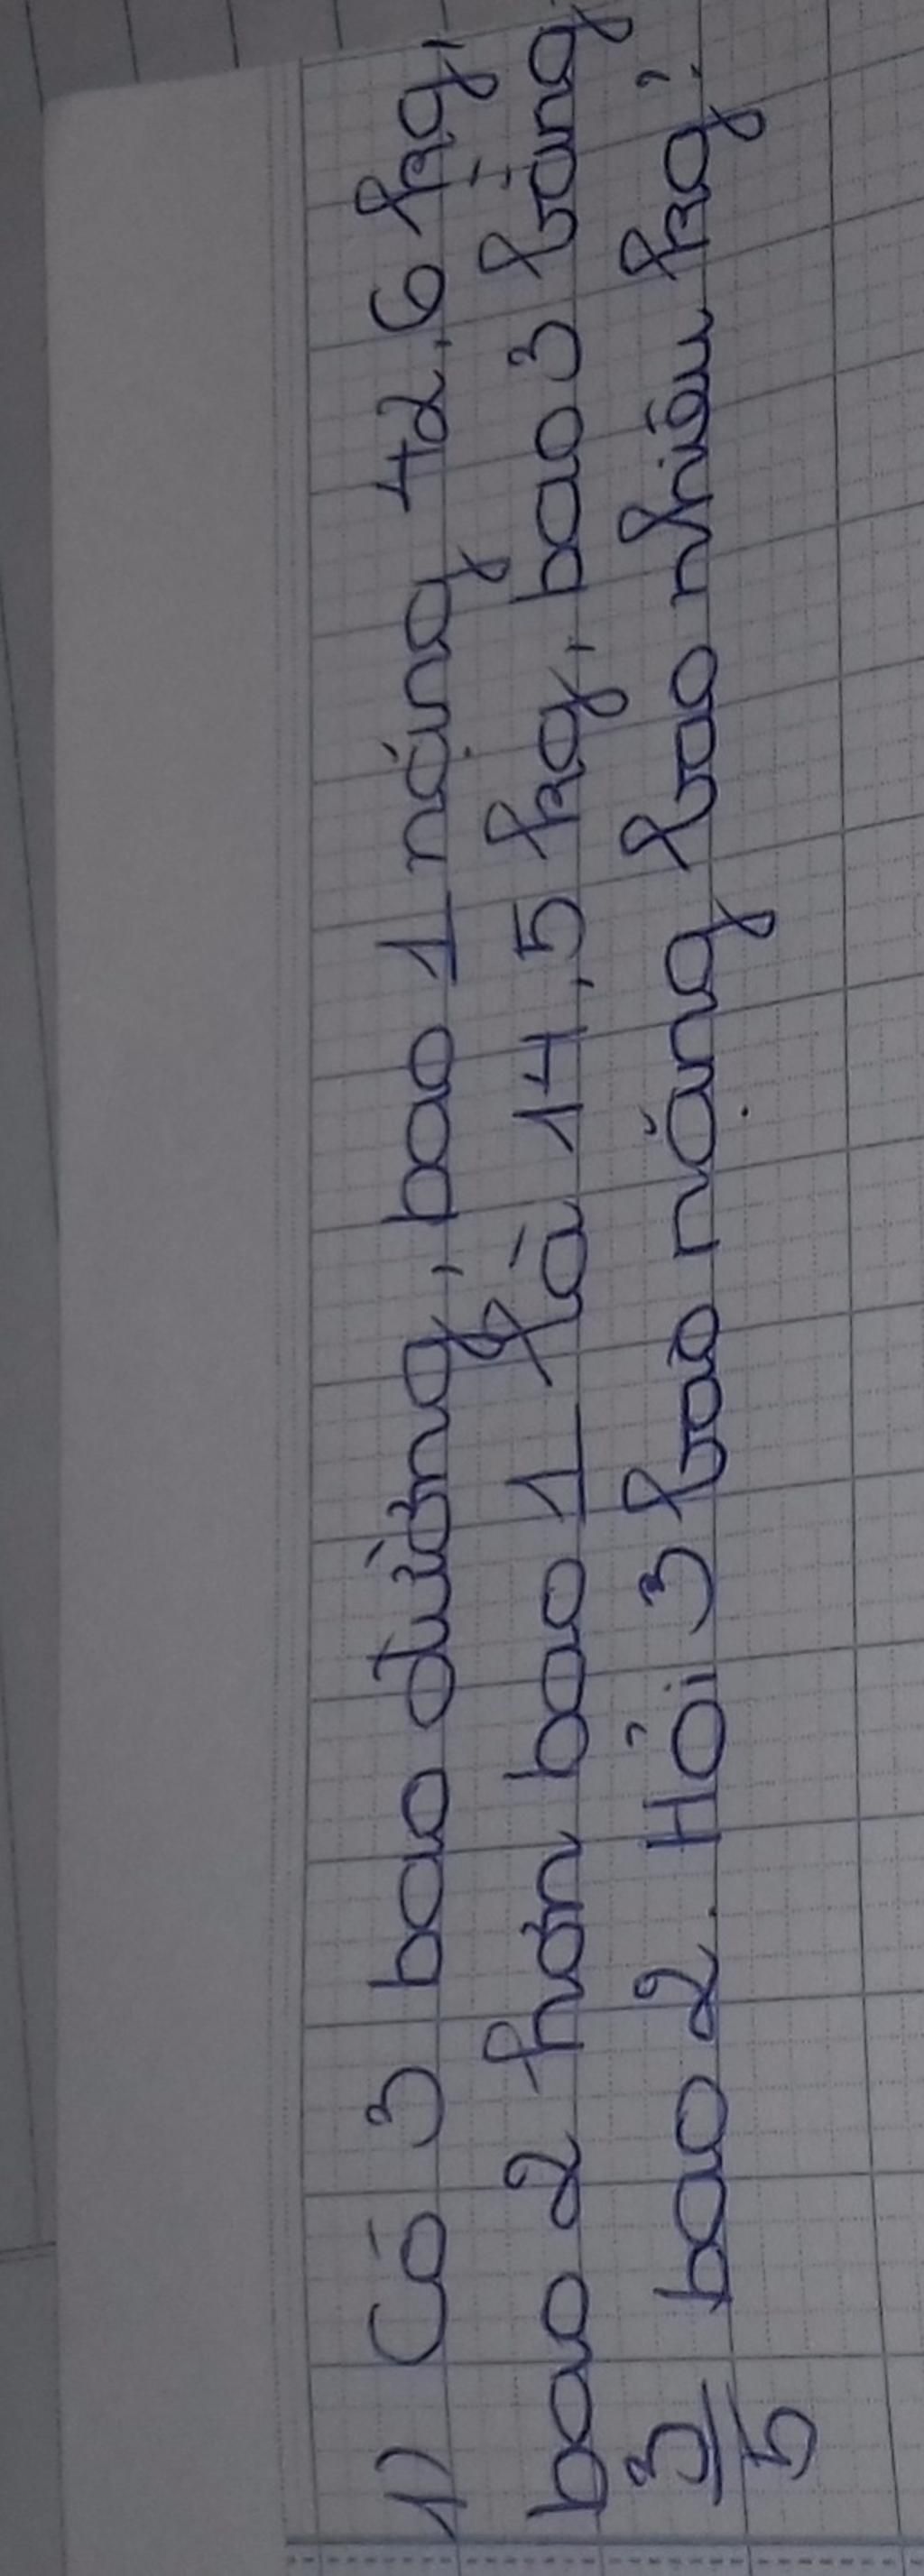 1) Có 3 bao đường, bao 1 nặng 42,6 kg,
bao 2 hơn bao 1 là 14,5 kg, bao 3 bằng
3/5 bao 2. Hỏi 3 bao nặng bao nhiêu kg?